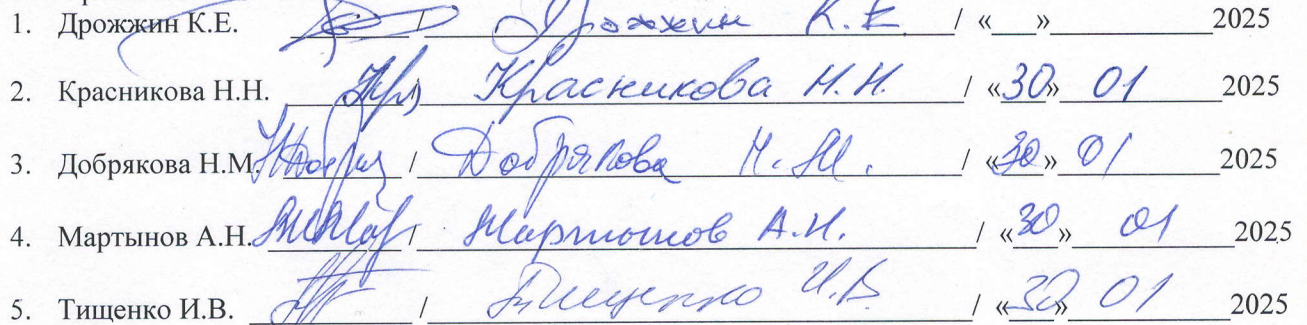 1. Дрожжин К.Е. / Дрожжин К.Е. / «___»____________2025
2. Красникова Н.Н. Красникова Н.Н. / «30» 01 2025
3. Добрякова Н.М. / Добрякова Н.М. / «30» 01 2025
4. Мартынов А.Н. / Мартынов А.Н. / «30» 01 2025
5. Тищенко И.В. / Тищенко И.В / «30» 01 2025